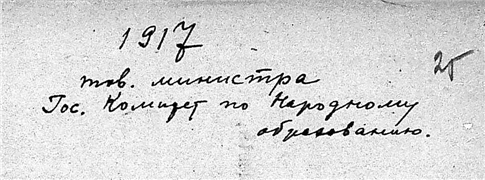 1917
25
тов. министра
Гос. Комитет по Народному
образованию.